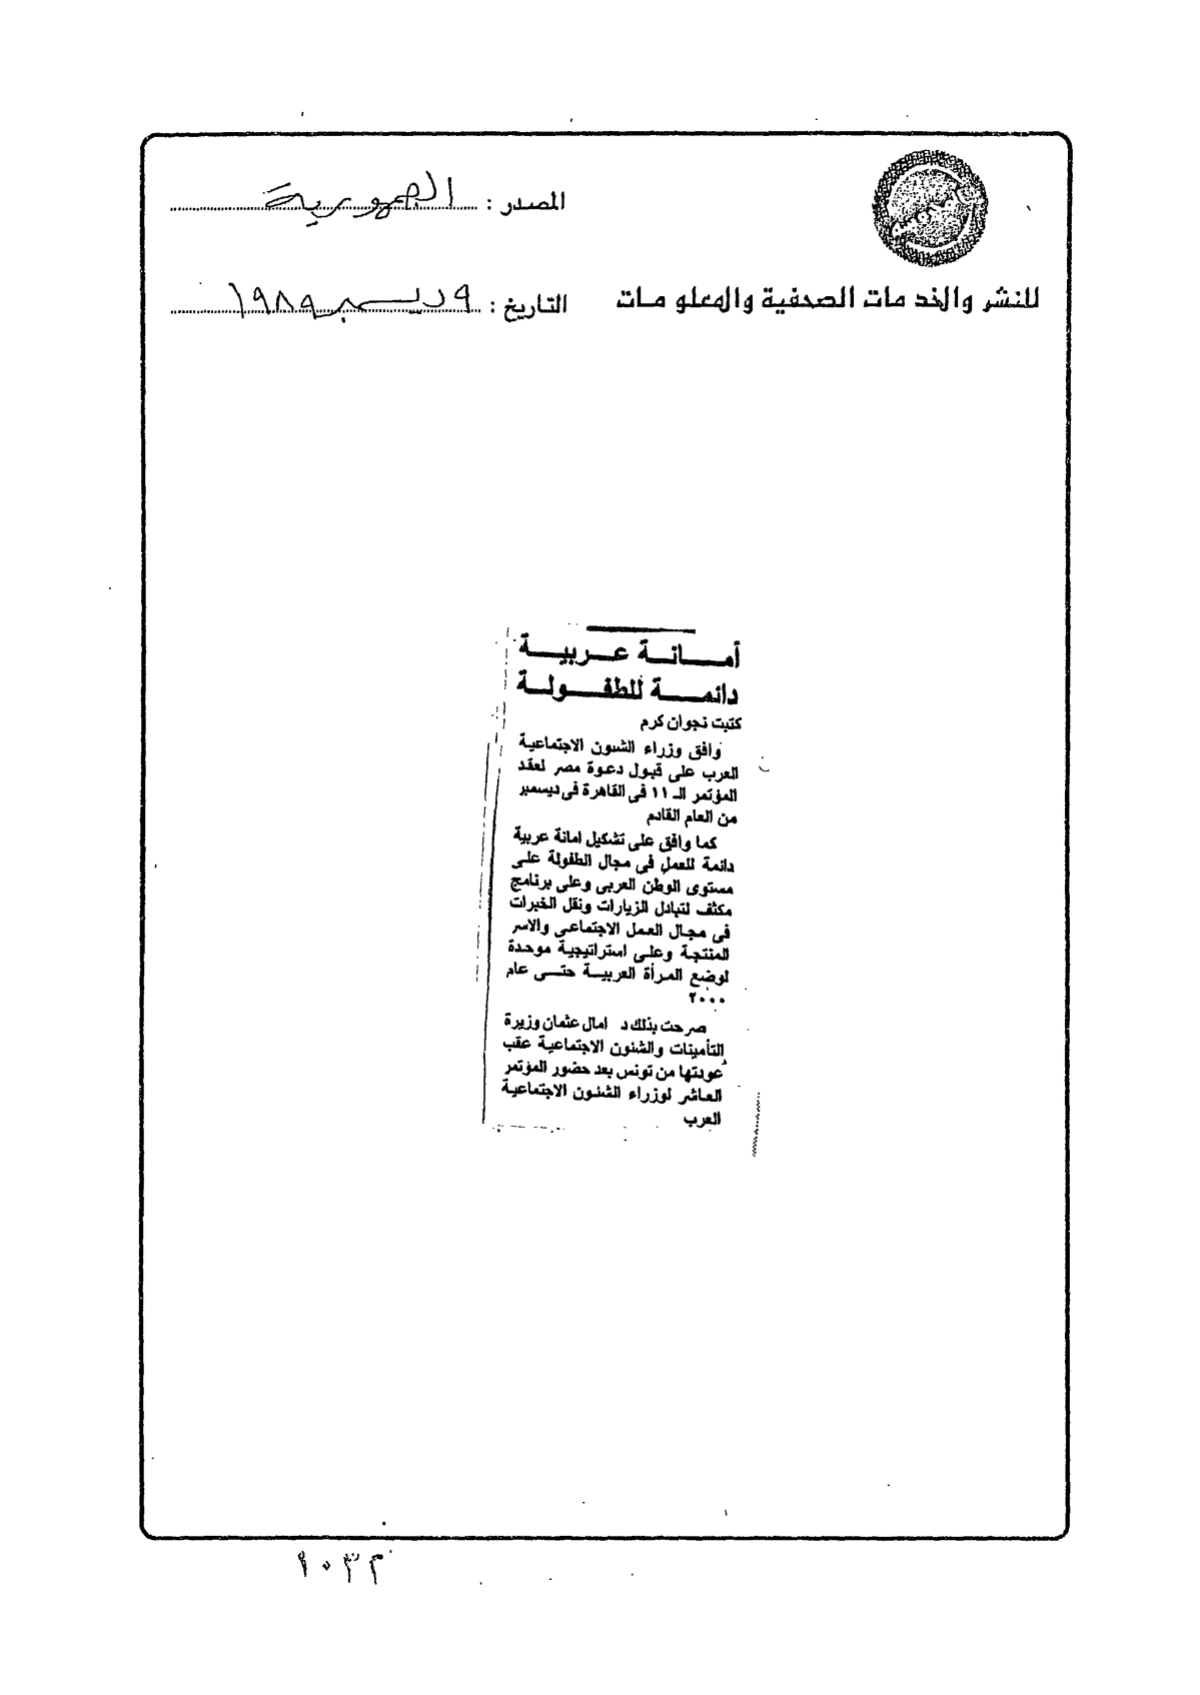 المصدر : الجمهورية
للنشر والخدمات الصحفية والمعلومات
التاريخ : ٩ ديسمبر ١٩٨٩
أمانة عربية
دائمة للطفولة
كتبت نجوان كرم
وافق وزراء الشئون الاجتماعية
العرب على قبول دعوة مصر لعقد
المؤتمر الـ ١١ فى القاهرة فى ديسمبر
من العام القادم
كما وافق على تشكيل امانة عربية
دائمة للعمل فى مجال الطفولة على
مستوى الوطن العربى وعلى برنامج
مكثف لتبادل الزيارات ونقل الخبرات
فى مجال العمل الاجتماعى والاسر
المنتجة وعلى استراتيجية موحدة
لوضع المرأة العربية حتى عام
٢٠٠٠
صرحت بذلك د امال عثمان وزيرة
التأمينات والشئون الاجتماعية عقب
عودتها من تونس بعد حضور المؤتمر
العاشر لوزراء الشئون الاجتماعية
العرب